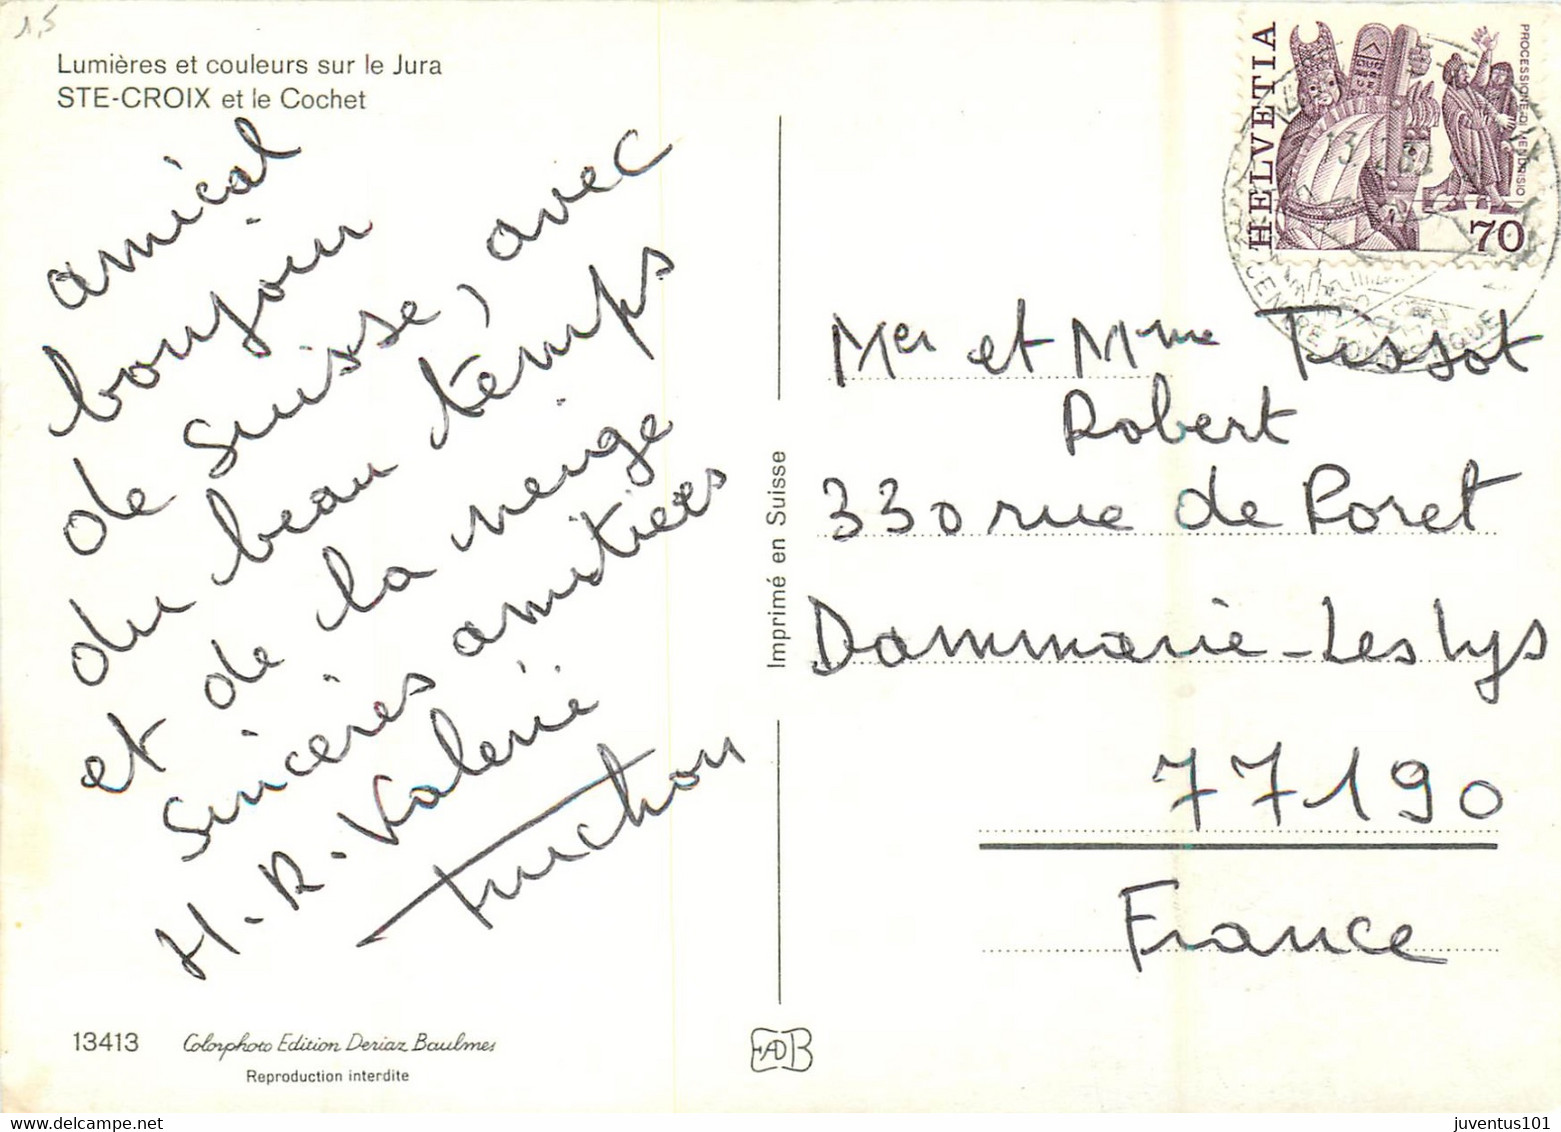 1,5
Lumières et couleurs sur le Jura
STE-CROIX et le Cochet
amical
bonjour
de suisse, avec
du beau temps
et de la neige
sincères amitiées
H. R. Valerie
Truchon
13413 Colorphoto Edition Deriaz Baulmes
Reproduction interdite
Imprimé en Suisse
EADB
HELVETIA
PROCESSIONE DI MENDRISIO
70
Mer et Mme Tissot
Robert
330 rue de Poret
Dammarie-Les lys
77190
France
juventus101